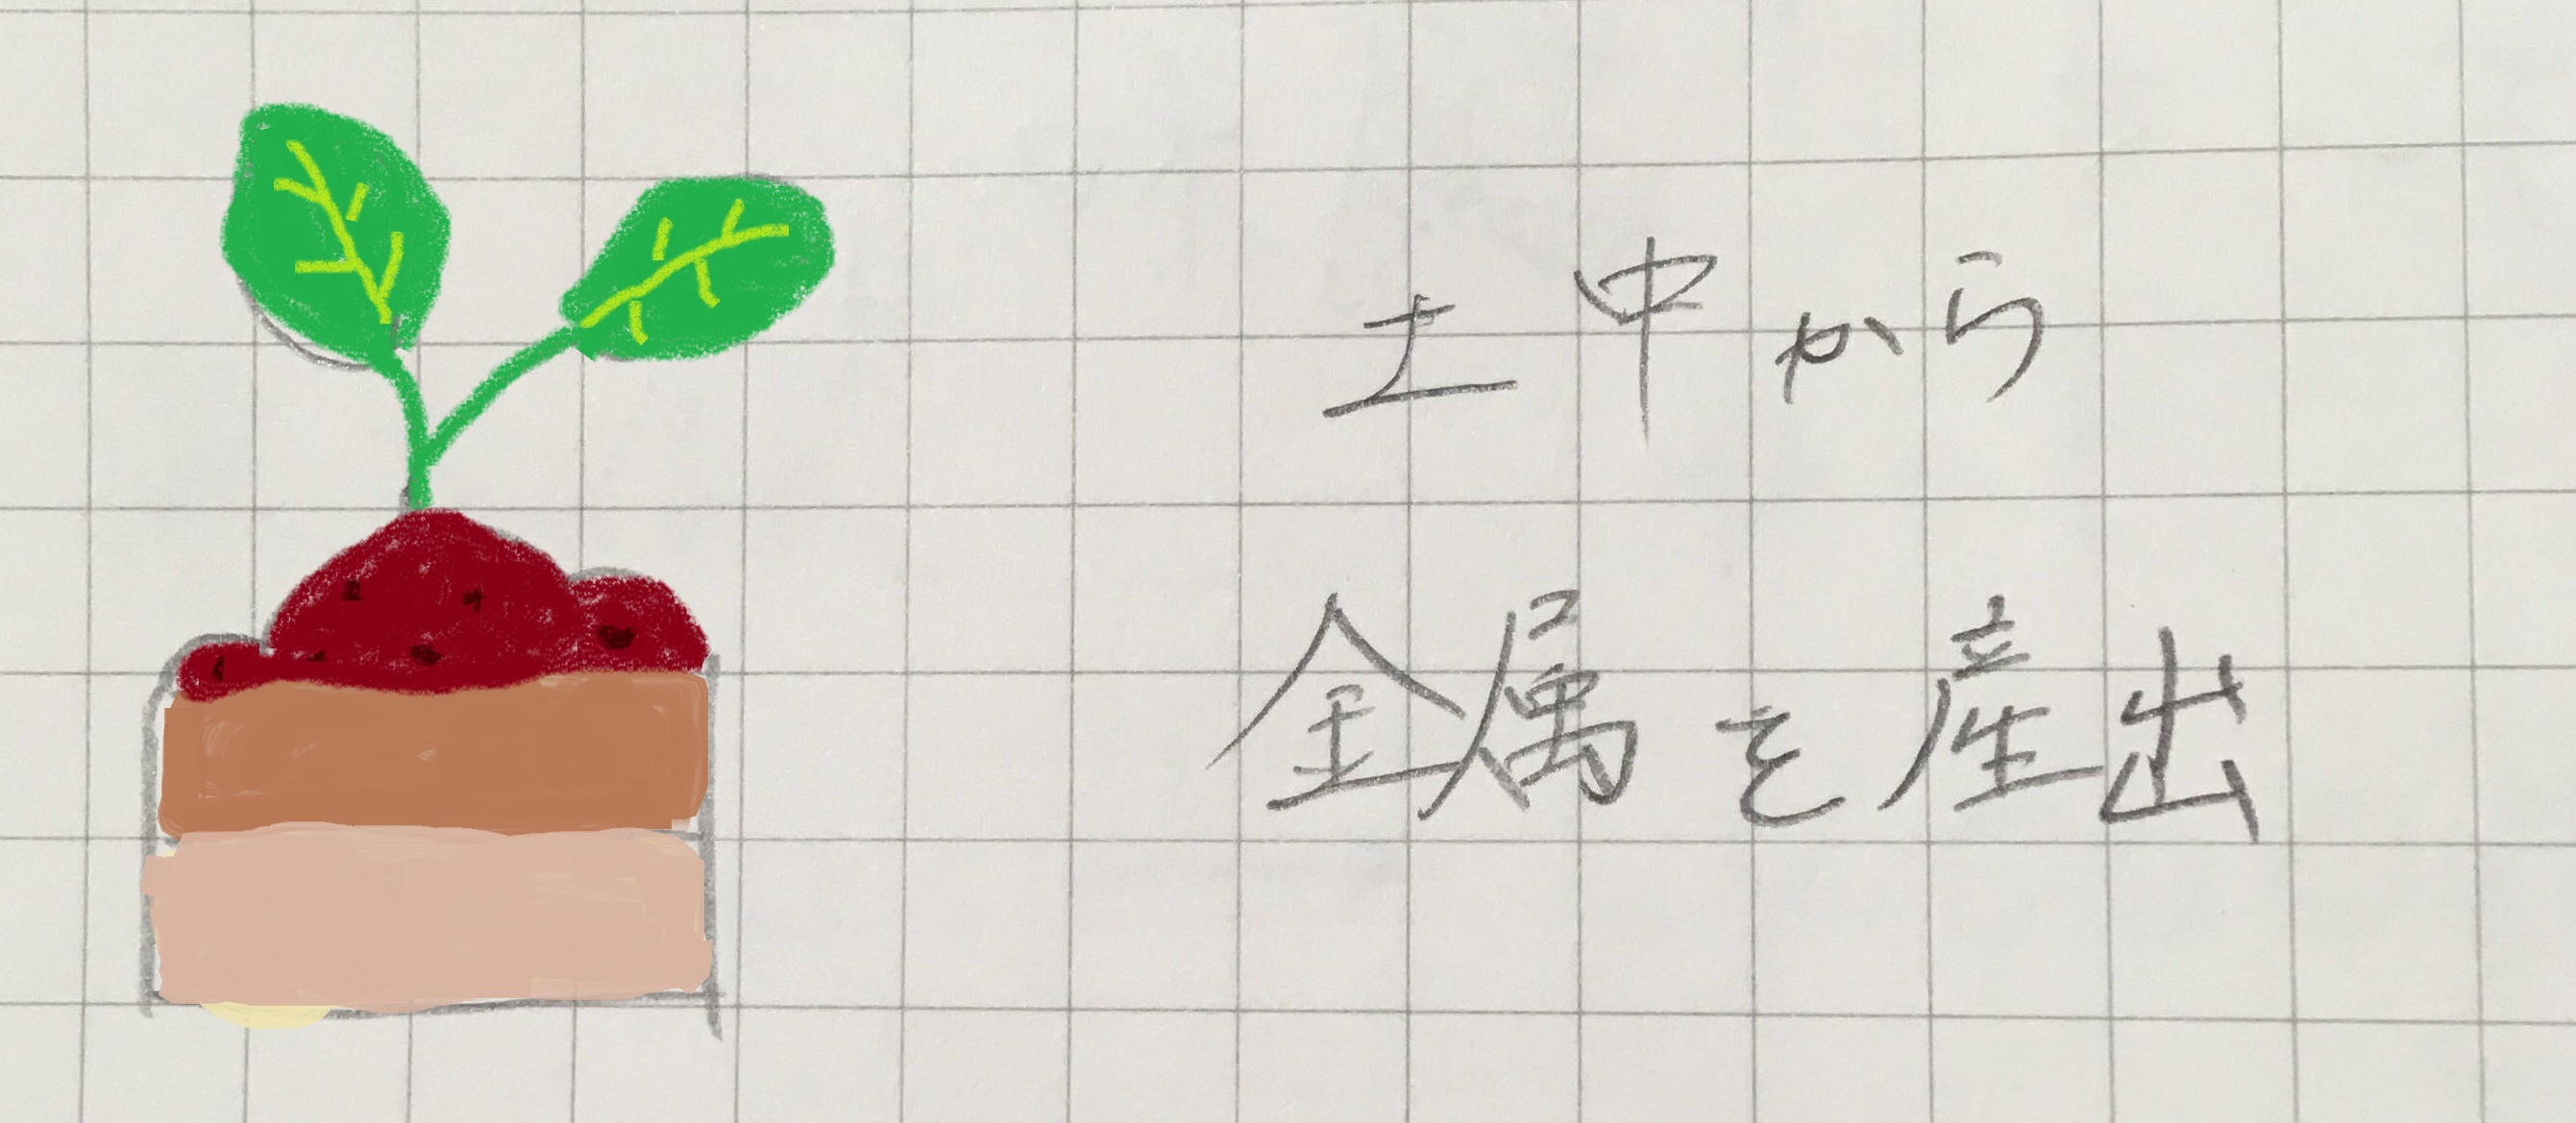 土中から
金属を産出